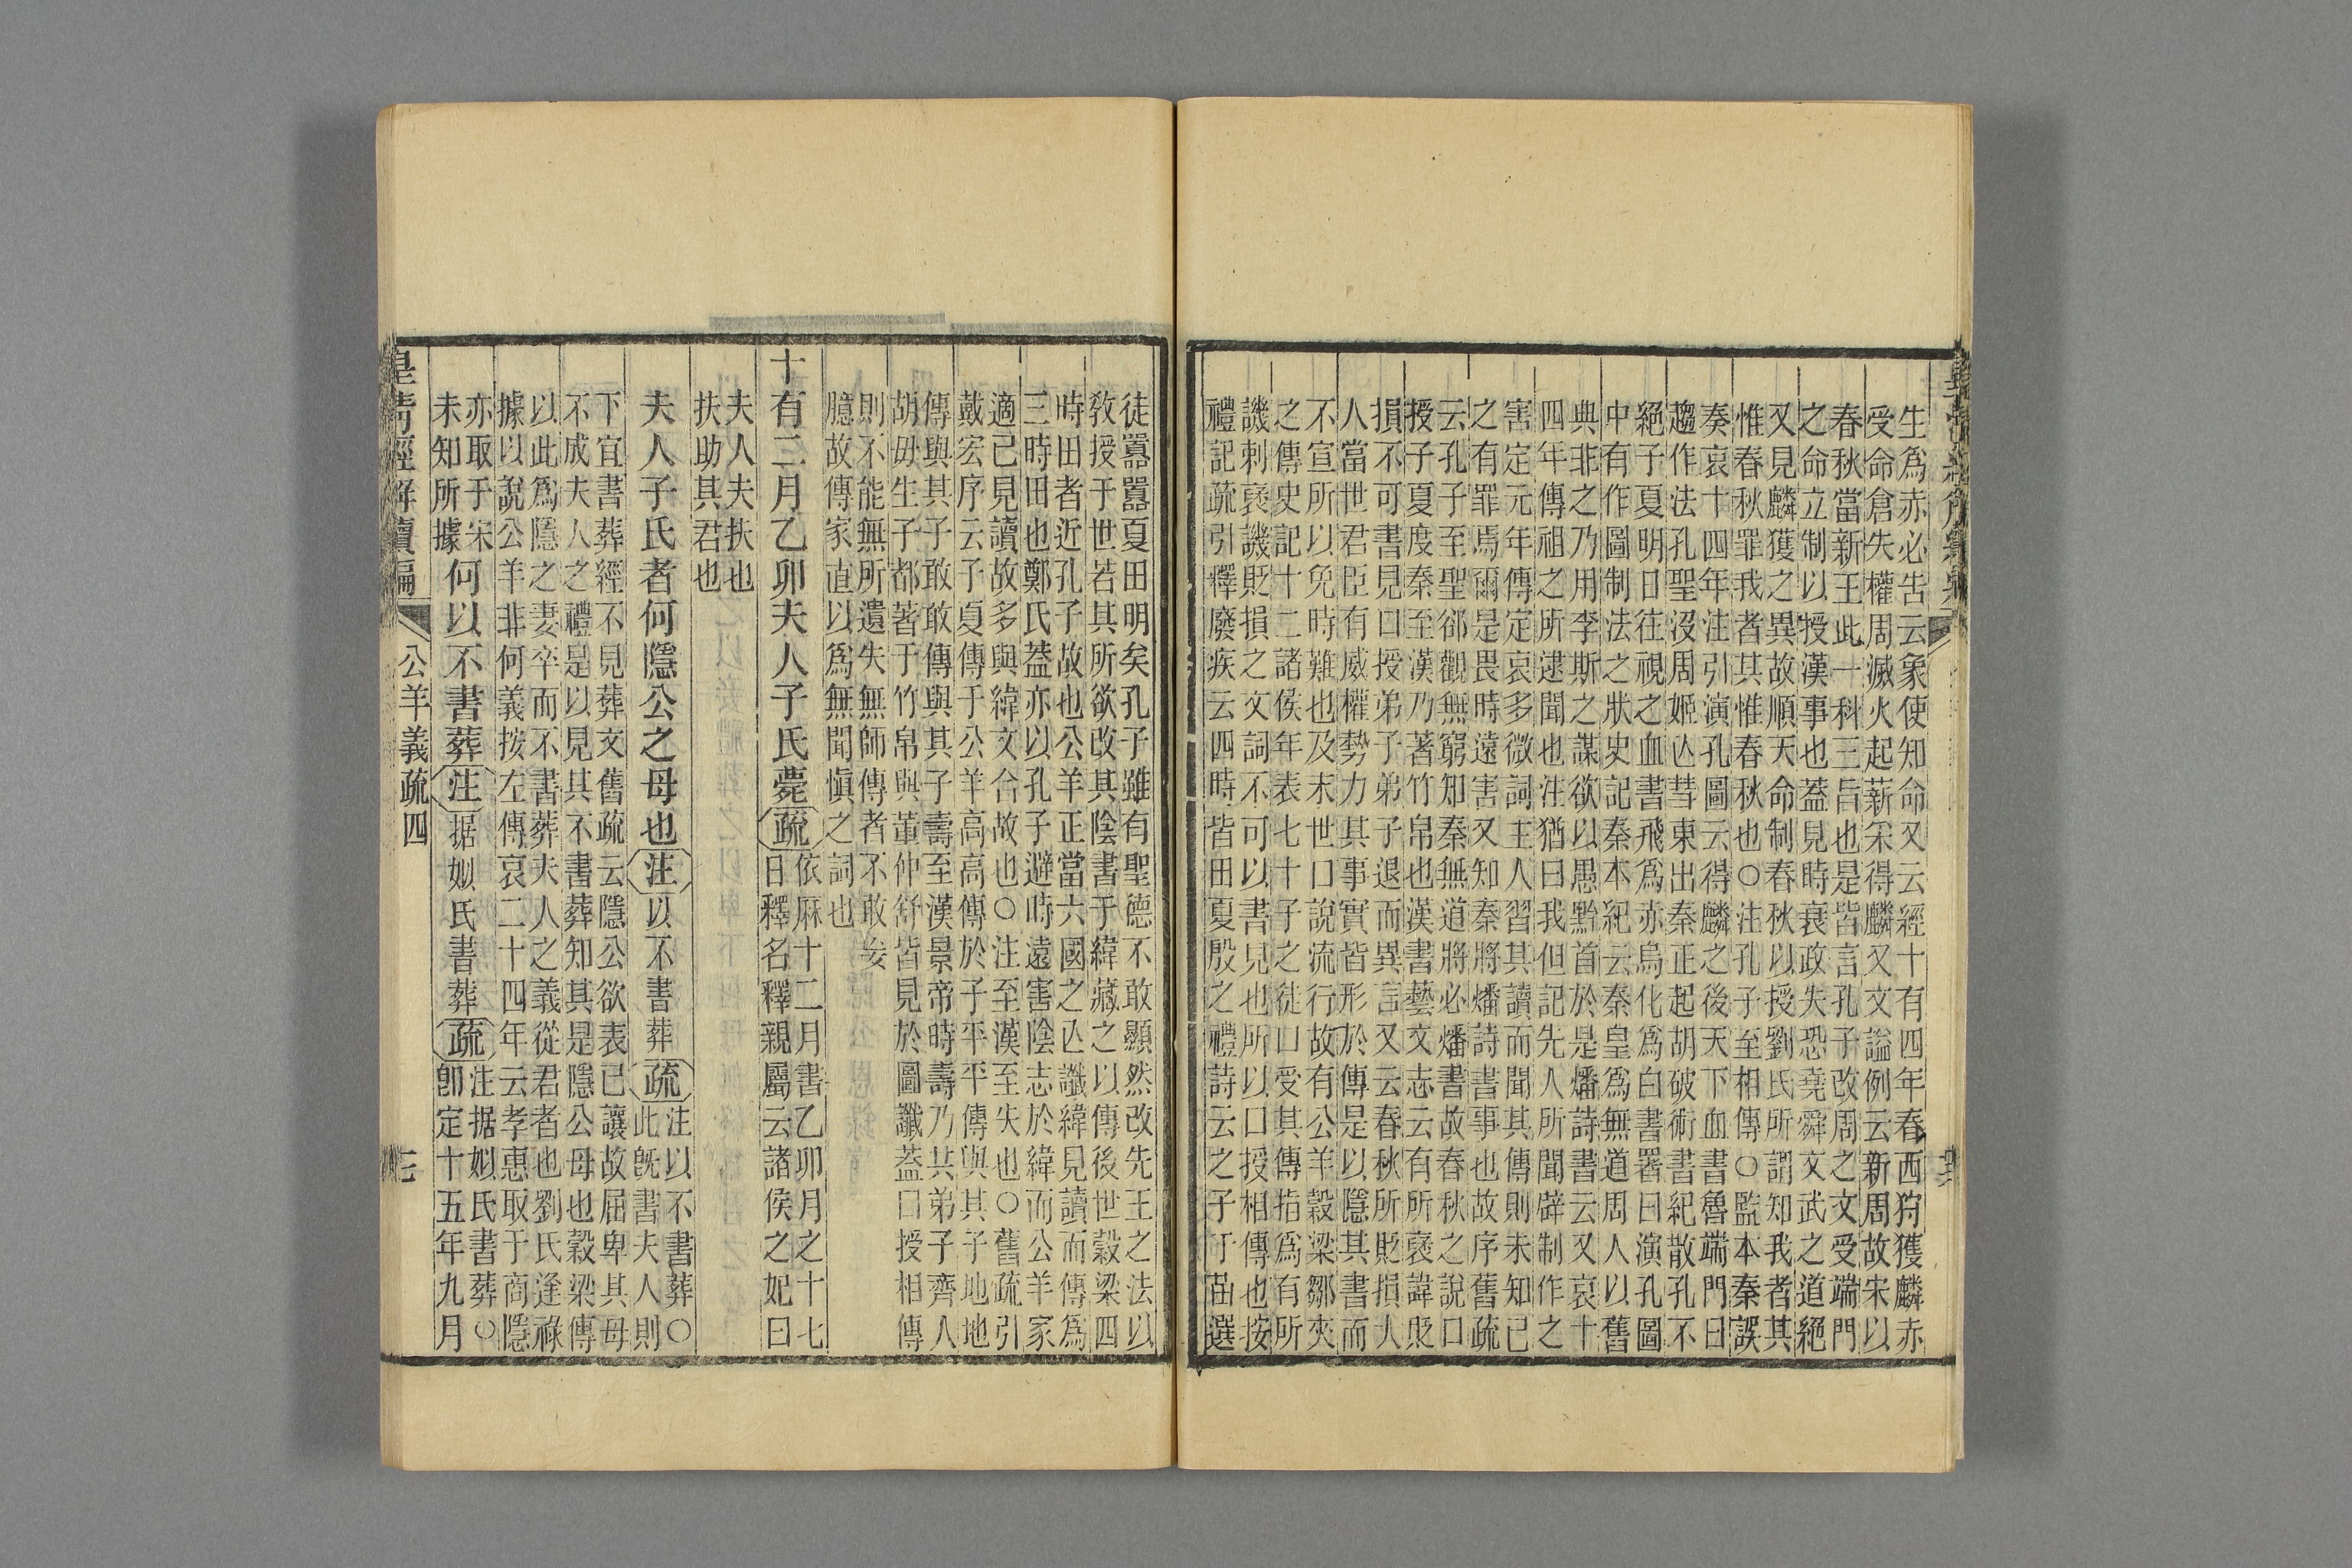 生爲赤必告云象使知命又云經十有四年春西狩獲麟赤
受命倉失權周滅火起薪采得麟又文諡例云新周故宋以
春秋當新王此一科三旨也是皆言孔子改周之文受端門
之命立制以授漢事也葢見時衰政失恐堯舜文武之道絕
又見麟獲之異故順天命制春秋以授劉氏所謂知我者其
惟春秋罪我者其惟春秋也○注孔子至相傳○監本秦誤
奏哀十四年注引演孔圖云得麟之後天下血書魯端門曰
趨作法孔聖沒周姬亾彗東出秦正起胡破術書紀散孔不
絕子夏明日往視之血書飛爲赤烏化爲白書署曰演孔圖
中有作圖制法之狀史記秦本紀云秦皇爲無道周人以舊
典非之乃用李斯之謀欲以愚黔首於是燔詩書云又哀十
四年傳祖之所逮聞也注猶曰我但記先人所聞辟制作之
害定元年傳定哀多微詞主人習其讀而聞其傳則未知已
之有罪焉爾是畏時遠害又知秦將燔詩書事也故序舊疏
云孔子至聖郤觀無窮知秦無道將必燔書故春秋之說口
授子夏度秦至漢乃著竹帛也漢書藝文志云有所褒諱貶
損不可書見口授弟子弟子退而異言又云春秋所貶損大
人當世君臣有威權勢力其事實皆形於傳是以隱其書而
不宣所以免時難也及末世口說流行故有公羊穀梁鄒夾
之傳史記十二諸侯年表七十子之徒口受其傳指爲有所
譏刺褒譏貶損之文詞不可以書見也所以口授相傳也按
禮記疏引釋廢疾云四時皆田夏殷之禮詩云之子于苗選
徒囂囂夏田明矣孔子雖有聖德不敢顯然改先王之法以
敎授于世若其所欲改其陰書于緯藏之以傳後世穀梁四
時田者近孔子故也公羊正當六國之亾讖緯見讀而傳爲
三時田也鄭氏葢亦以孔子避時遠害陰志於緯而公羊家
適已見讀故多與緯文合故也○注至漢至失也○舊疏引
戴宏序云子夏傳于公羊高高傳於子平平傳與其子地地
傳與其子敢敢傳與其子壽至漢景帝時壽乃共弟子齊人
胡毋生子都著于竹帛與董仲舒皆見於圖讖葢口授相傳
則不能無所遺失無師傳者不敢妄
臆故傳家直以爲無聞愼之詞也
十有二月乙卯夫人子氏薨疏依厤十二月書乙卯月之十七
日釋名釋親屬云諸侯之妃曰
夫人夫扶也
扶助其君也
夫人子氏者何隱公之母也注以不書葬疏注以不書葬○
此旣書夫人則
下宜書葬經不見葬文舊疏云隱公欲表已讓故屈卑其母
不成夫人之禮是以見其不書葬知其是隱公母也穀梁傳
以此爲隱之妻卒而不書葬夫人之義從君者也劉氏逢祿
據以說公羊非何義按左傳哀二十四年云孝惠取于商隱
亦取于宋
未知所據何以不書葬注据姒氏書葬疏注据姒氏書葬○
卽定十五年九月
皇淸經解續編
公羊義疏四